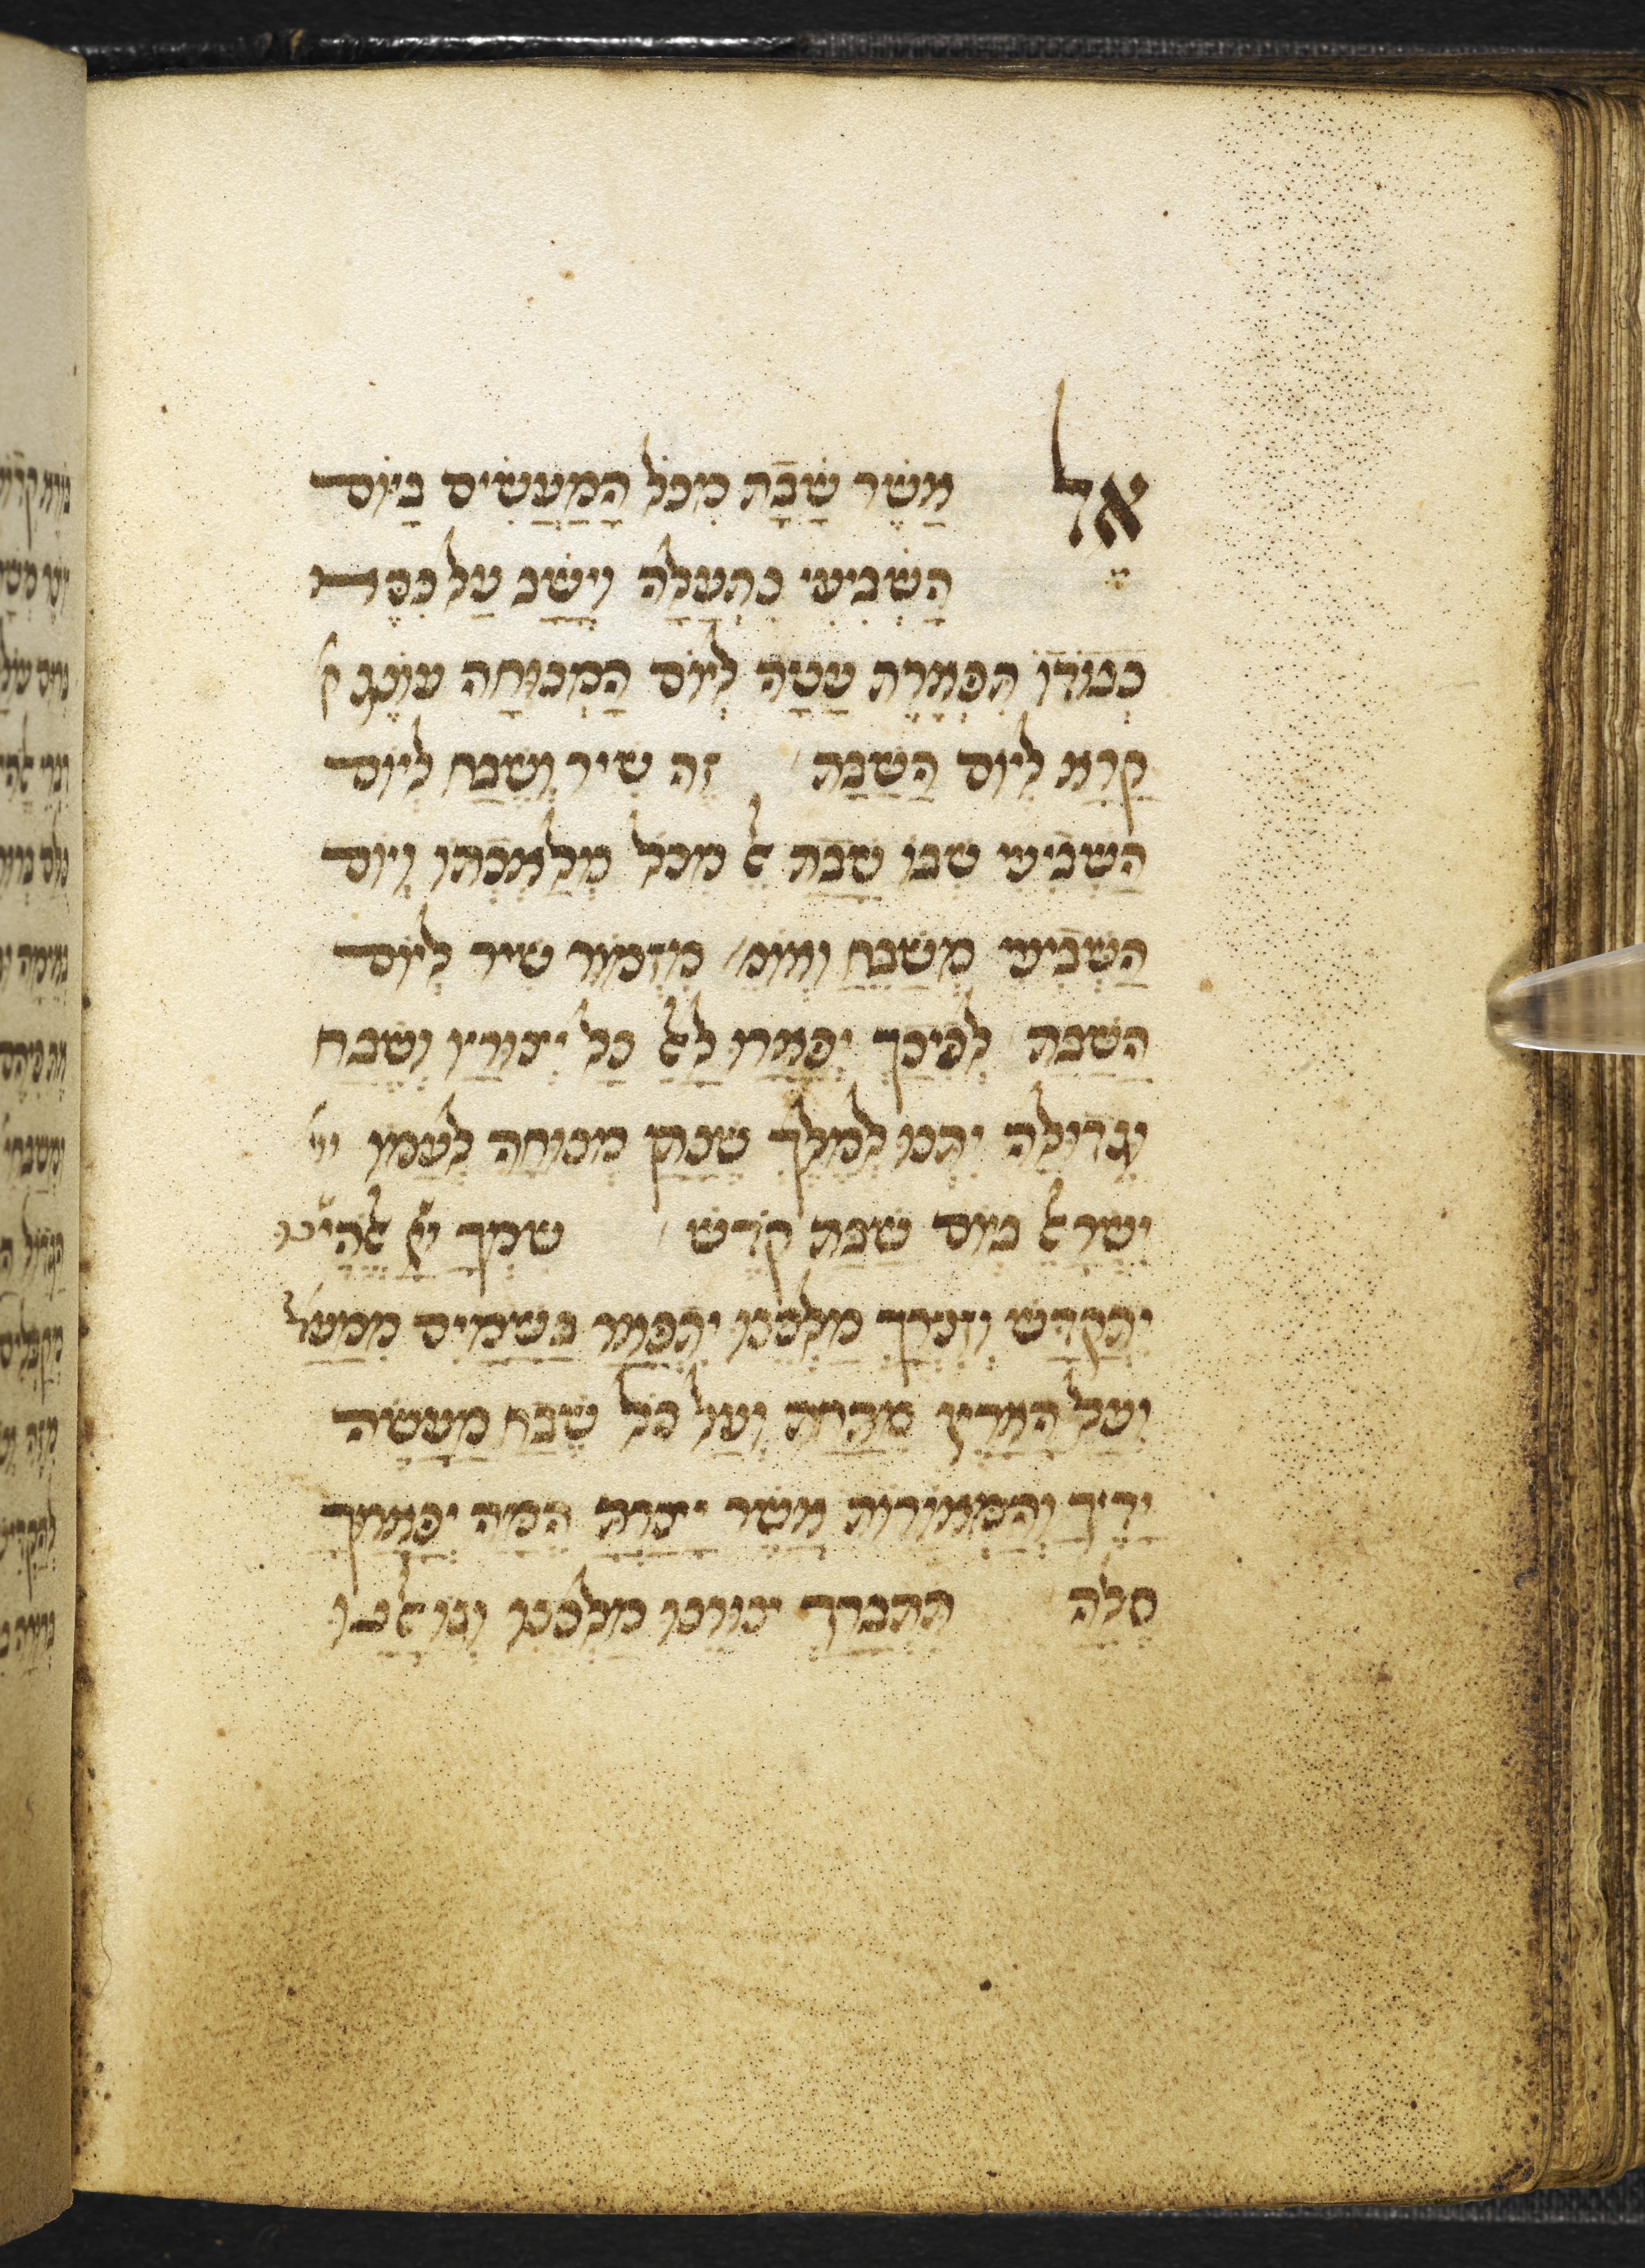 אל אֲשֶׁר שָׁבַת מִכָּל הַמַּעֲשִׂים בַּיּוֹם
הַשְּׁבִיעִי נִתְעַלָּה וְיָשַׁב עַל כִּסֵּא
כְּבוֹדוֹ תִּפְאֶרֶת עָטָה לְיוֹם הַמְּנוּחָה עוֹנֶג ק
קָרָא לְיוֹם הַשַּׁבָּת זֶה שִׁיר וְשֶׁבַח לְיוֹם
הַשְּׁבִיעִי שֶׁבּוֹ שָׁבַת אֵל מִכָּל מְלַאכְתּוֹ וְיוֹם
הַשְּׁבִיעִי מְשַׁבֵּחַ וְאוֹמֵ' מִזְמוֹר שִׁיר לְיוֹם
הַשַּׁבָּת לְפִיכָךְ יְפָאֲרוּ לָאֵל כָּל יְצוּרָיו וְשֶׁבַח
וּגְדוּלָּה יִתְּנוּ לְמֶלֶךְ מְנוּחָה לְעַמּוֹ יש
יִשְׂרָאֵל בְּיוֹם שַׁבַּת קֹדֶשׁ שִׁמְךָ יְיָ אֱלֹהֵינוּ
יִתְקַדַּשׁ וְזִכְרְךָ מַלְכֵּנוּ יִתְפָּאַר בַּשָּׁמַיִם מִמַּעַל
וְעַל הָאָרֶץ מִתַּחַת וְעַל כָּל שֶׁבַח מַעֲשֵׂה
יָדֶיךָ וְהַמְּאוֹרוֹת אֲשֶׁר יָצַרְתָּ הֵמָּה יְפָאֲרוּךָ
סֶלָה תִּתְבָּרַךְ צוּרֵנוּ מַלְכֵּנוּ וְגוֹאֲלֵנוּ